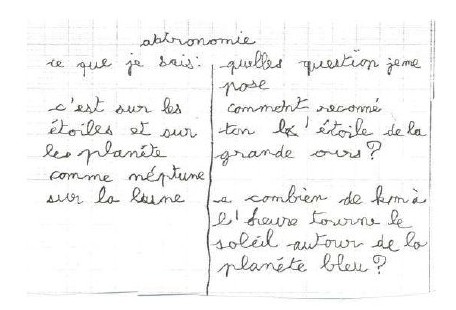 abtronomie
ce que je sais:
c'est sur les
étoiles et sur
les planéte
comme néptune
sur la lune
quelles question jeme
pose
comment reconné
ton l'étoile de la
grande ours?
a combien de km à
l'heure tourne le
soléil autour de la
planéte bleu?